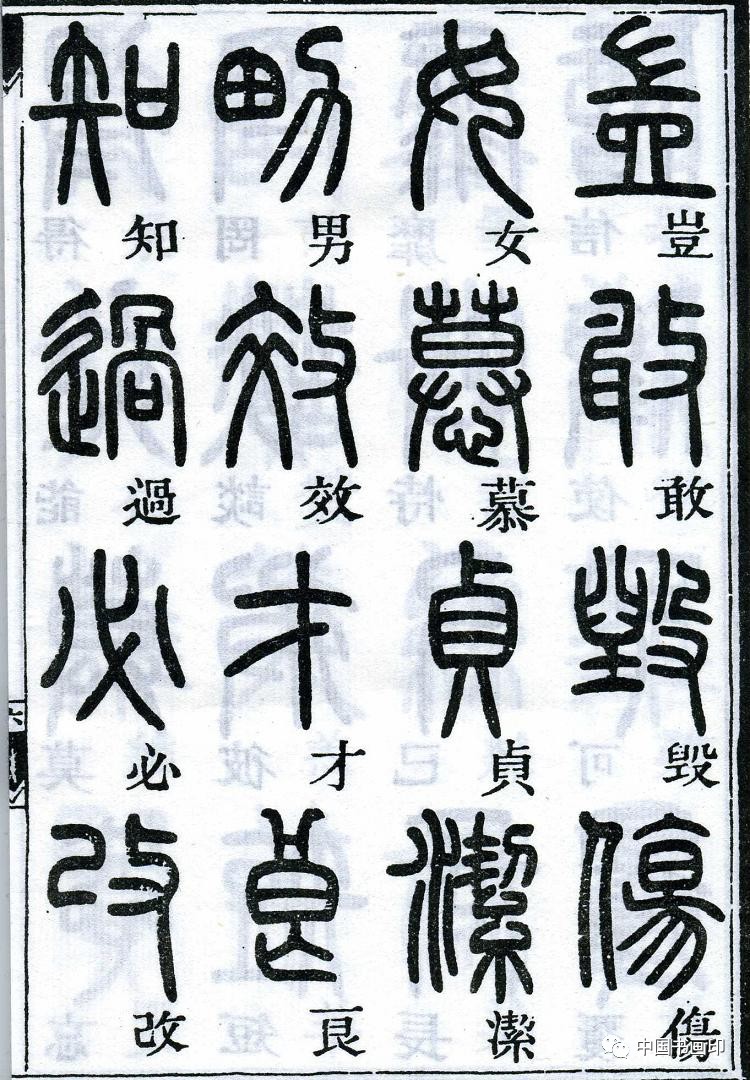 豈敢毀傷
女慕貞潔
男效才良
知過必改
六
中国书画印